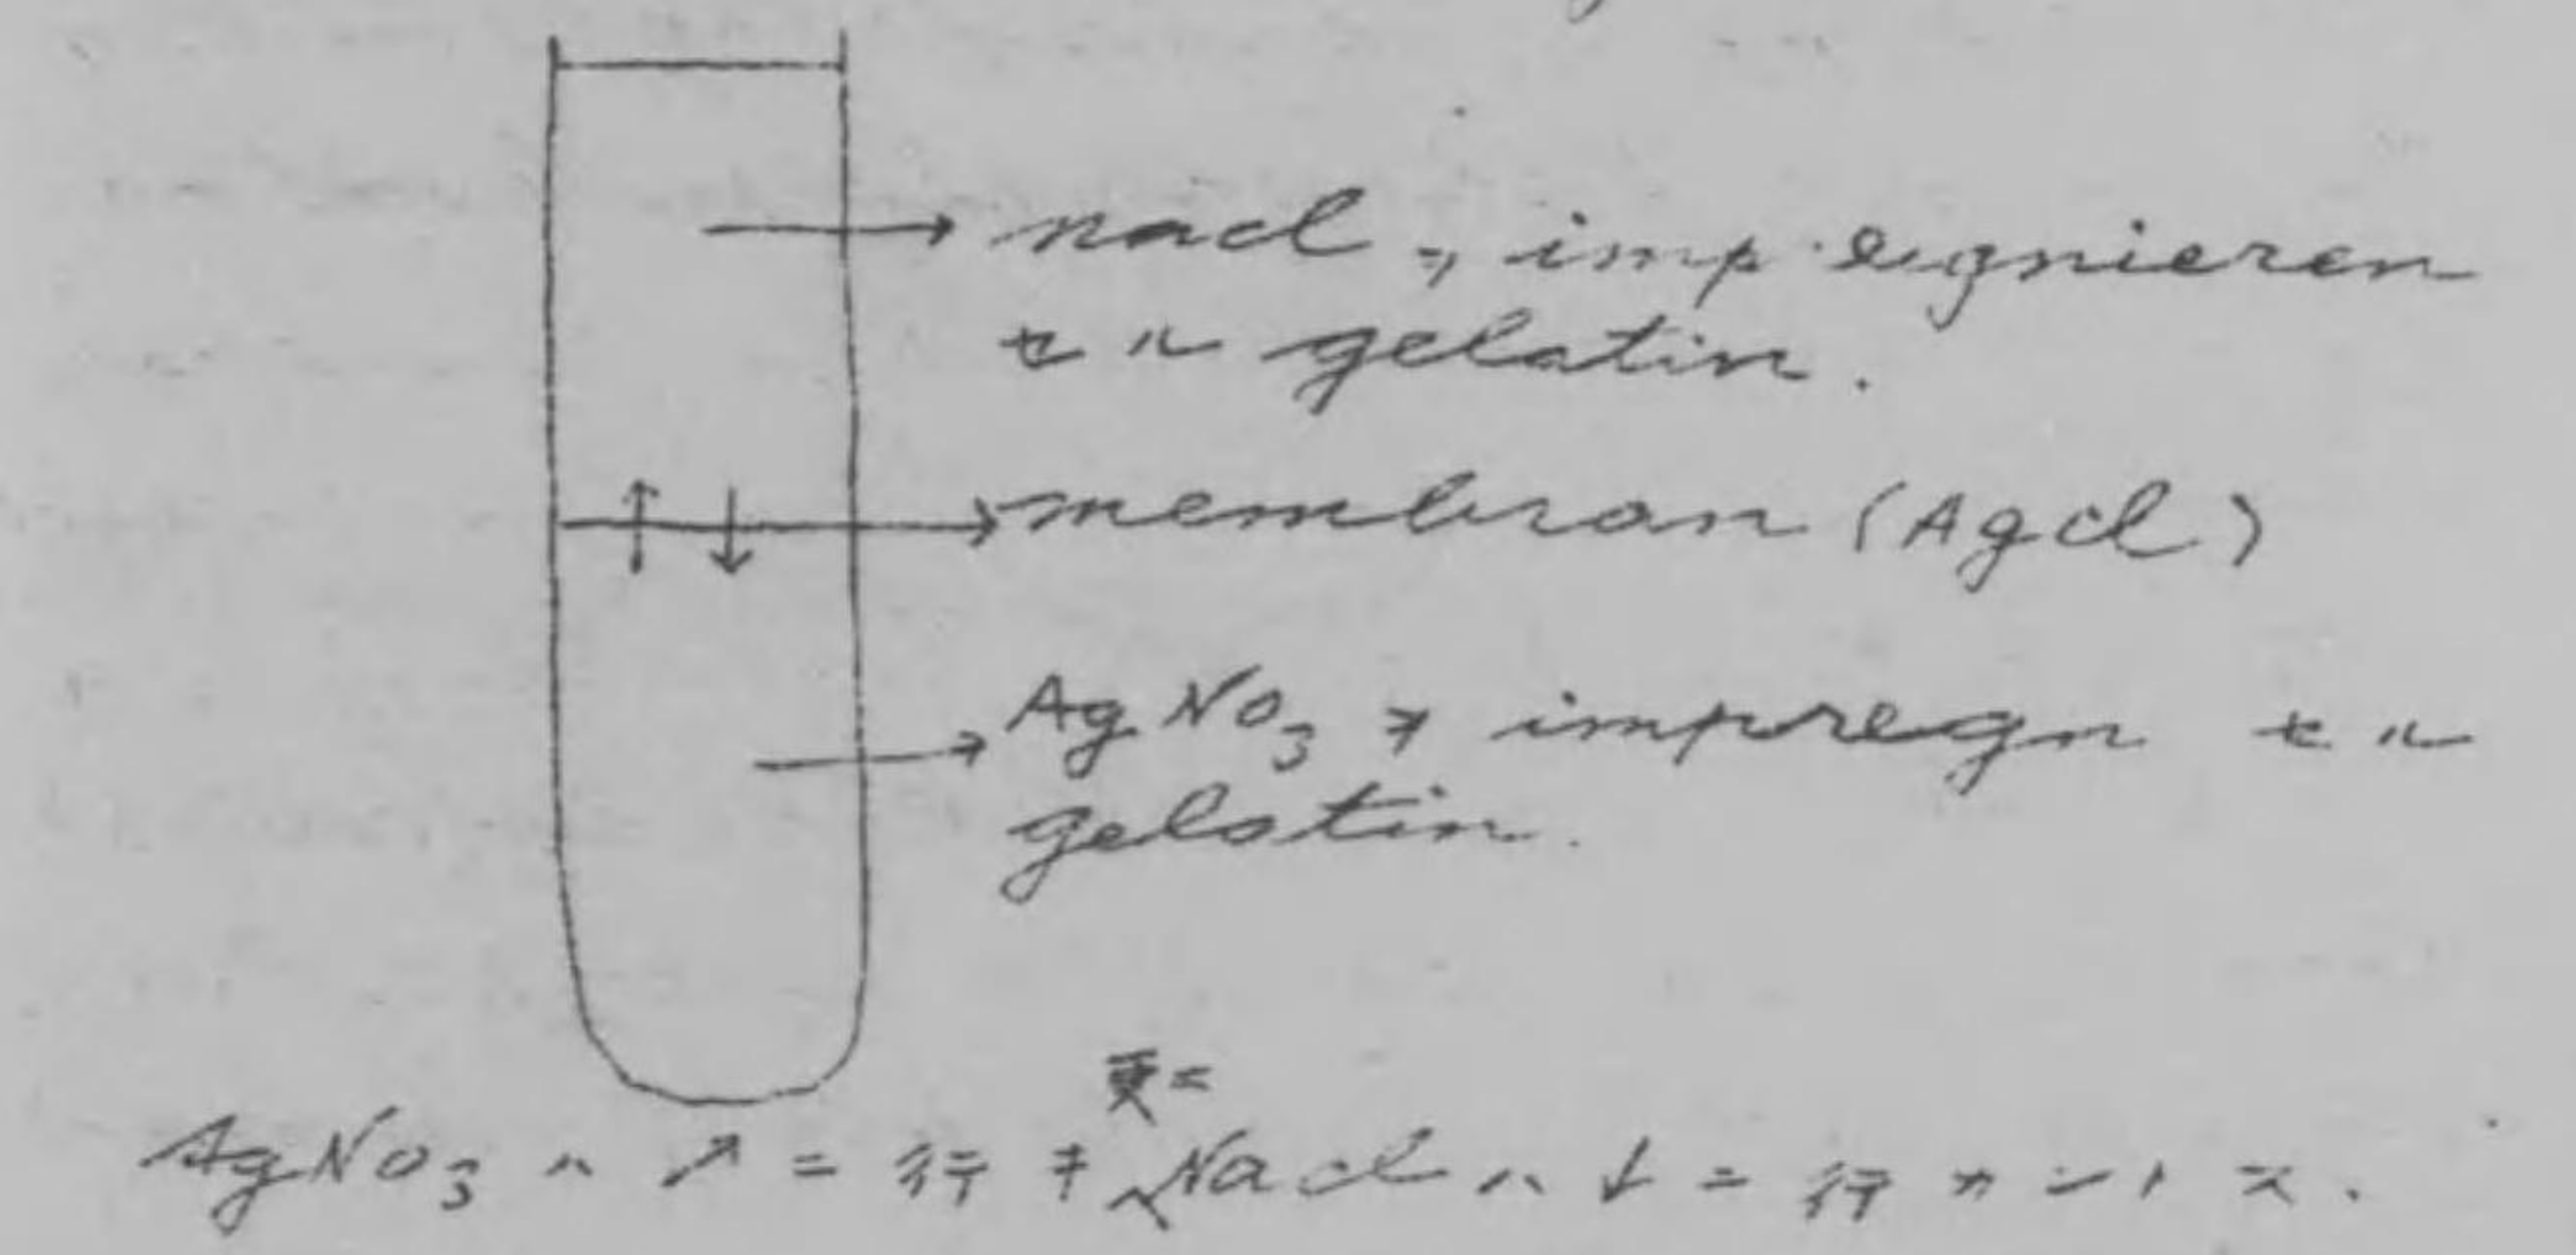 NaCl ヲ impregnieren
セル gelatin.
membran (AgCl)
AgNO3 ヲ impregn セル
gelatin.
AgNO3 ハ ↗ ニ 行キ NaCl ハ ↓ ニ 行カントス.